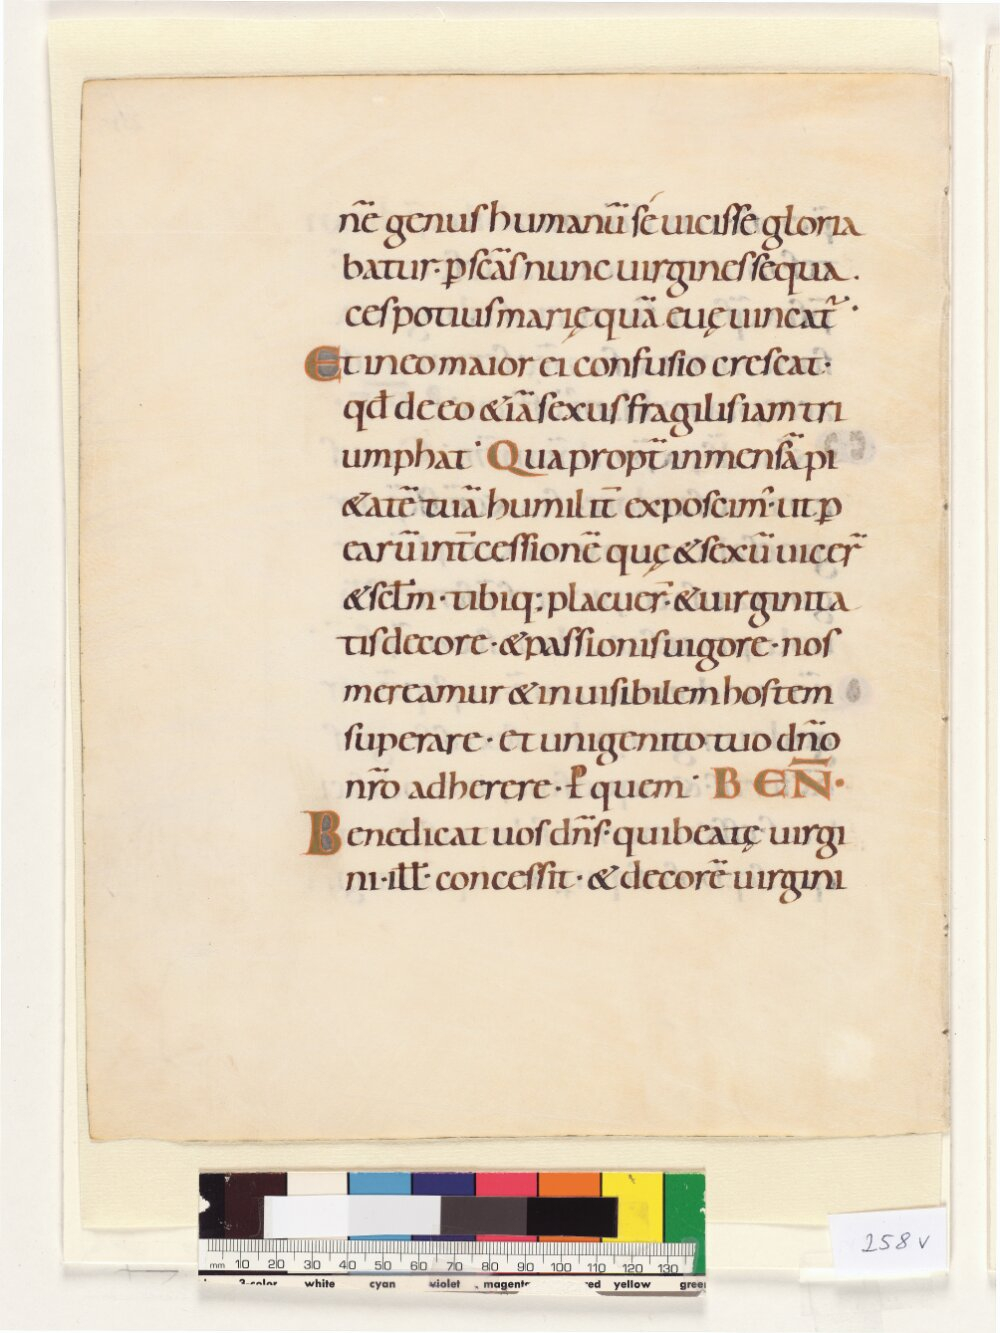 nē genus humanū sé uicisse gloria
batur· ꝑ scās nunc uirgines sequa·
ces potius marię quā euę uincat᷑·
Et in eo maior ei confusio crescat·
qđ de eo &iā sexus fragilis iam tri
umphat· Qua propt̄ inmensā pi
&atē tuā humilit̄ exposcim᷑· ut ꝑ
earū int̄cessionē quę & sexū uicer̄
& sclm̄· tibiq; placuer̄· & uirginita
tis decore· & passionis uigore· nos
mereamur & inuisibilem hostem
superare· et unigenito tuo dn̄o
nr̄o adherere· ꝑ quem· BEN̄·
Benedicat uos dn̄s· qui beatę uirgi
ni· ill̄· concessit· & decorē uirgini
258 v
mm 10 20 30 40 50 60 70 80 90 100 110 120 130
3-color white cyan violet magenta red yellow green